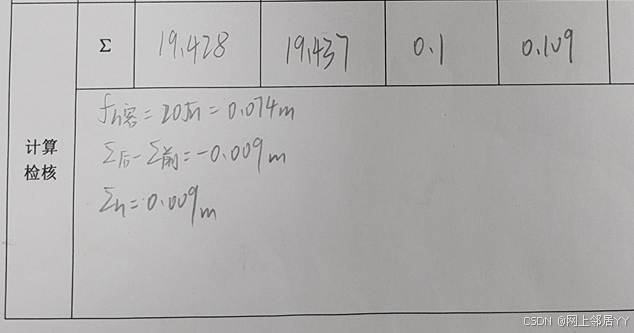 Σ 19.428 19.437 0.1 0.109
fh容=20√n=0.074m
Σ后-Σ前=-0.009m
Σh=0.009m
计算
检核
CSDN @网上邻居YY